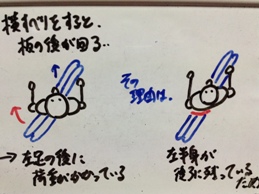 横すべりをすると、
板の後が回る…
その
理由は…
→左足の後に
荷重がかかっている
左半身が
後ろに残っている
ため